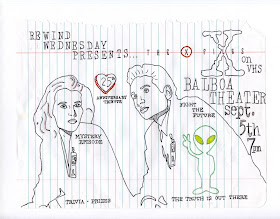 REWIND
WEDNESDAY
PRESENTS...
THE X FILES
X
on
VHS
25th
ANNIVERSARY
TRIBUTE
BALBOA
THEATER
Sept.
5th
7pm
FIGHT
THE
FUTURE
MYSTERY
EPISODE
TRIVIA - PRIZES
THE TRUTH IS OUT THERE